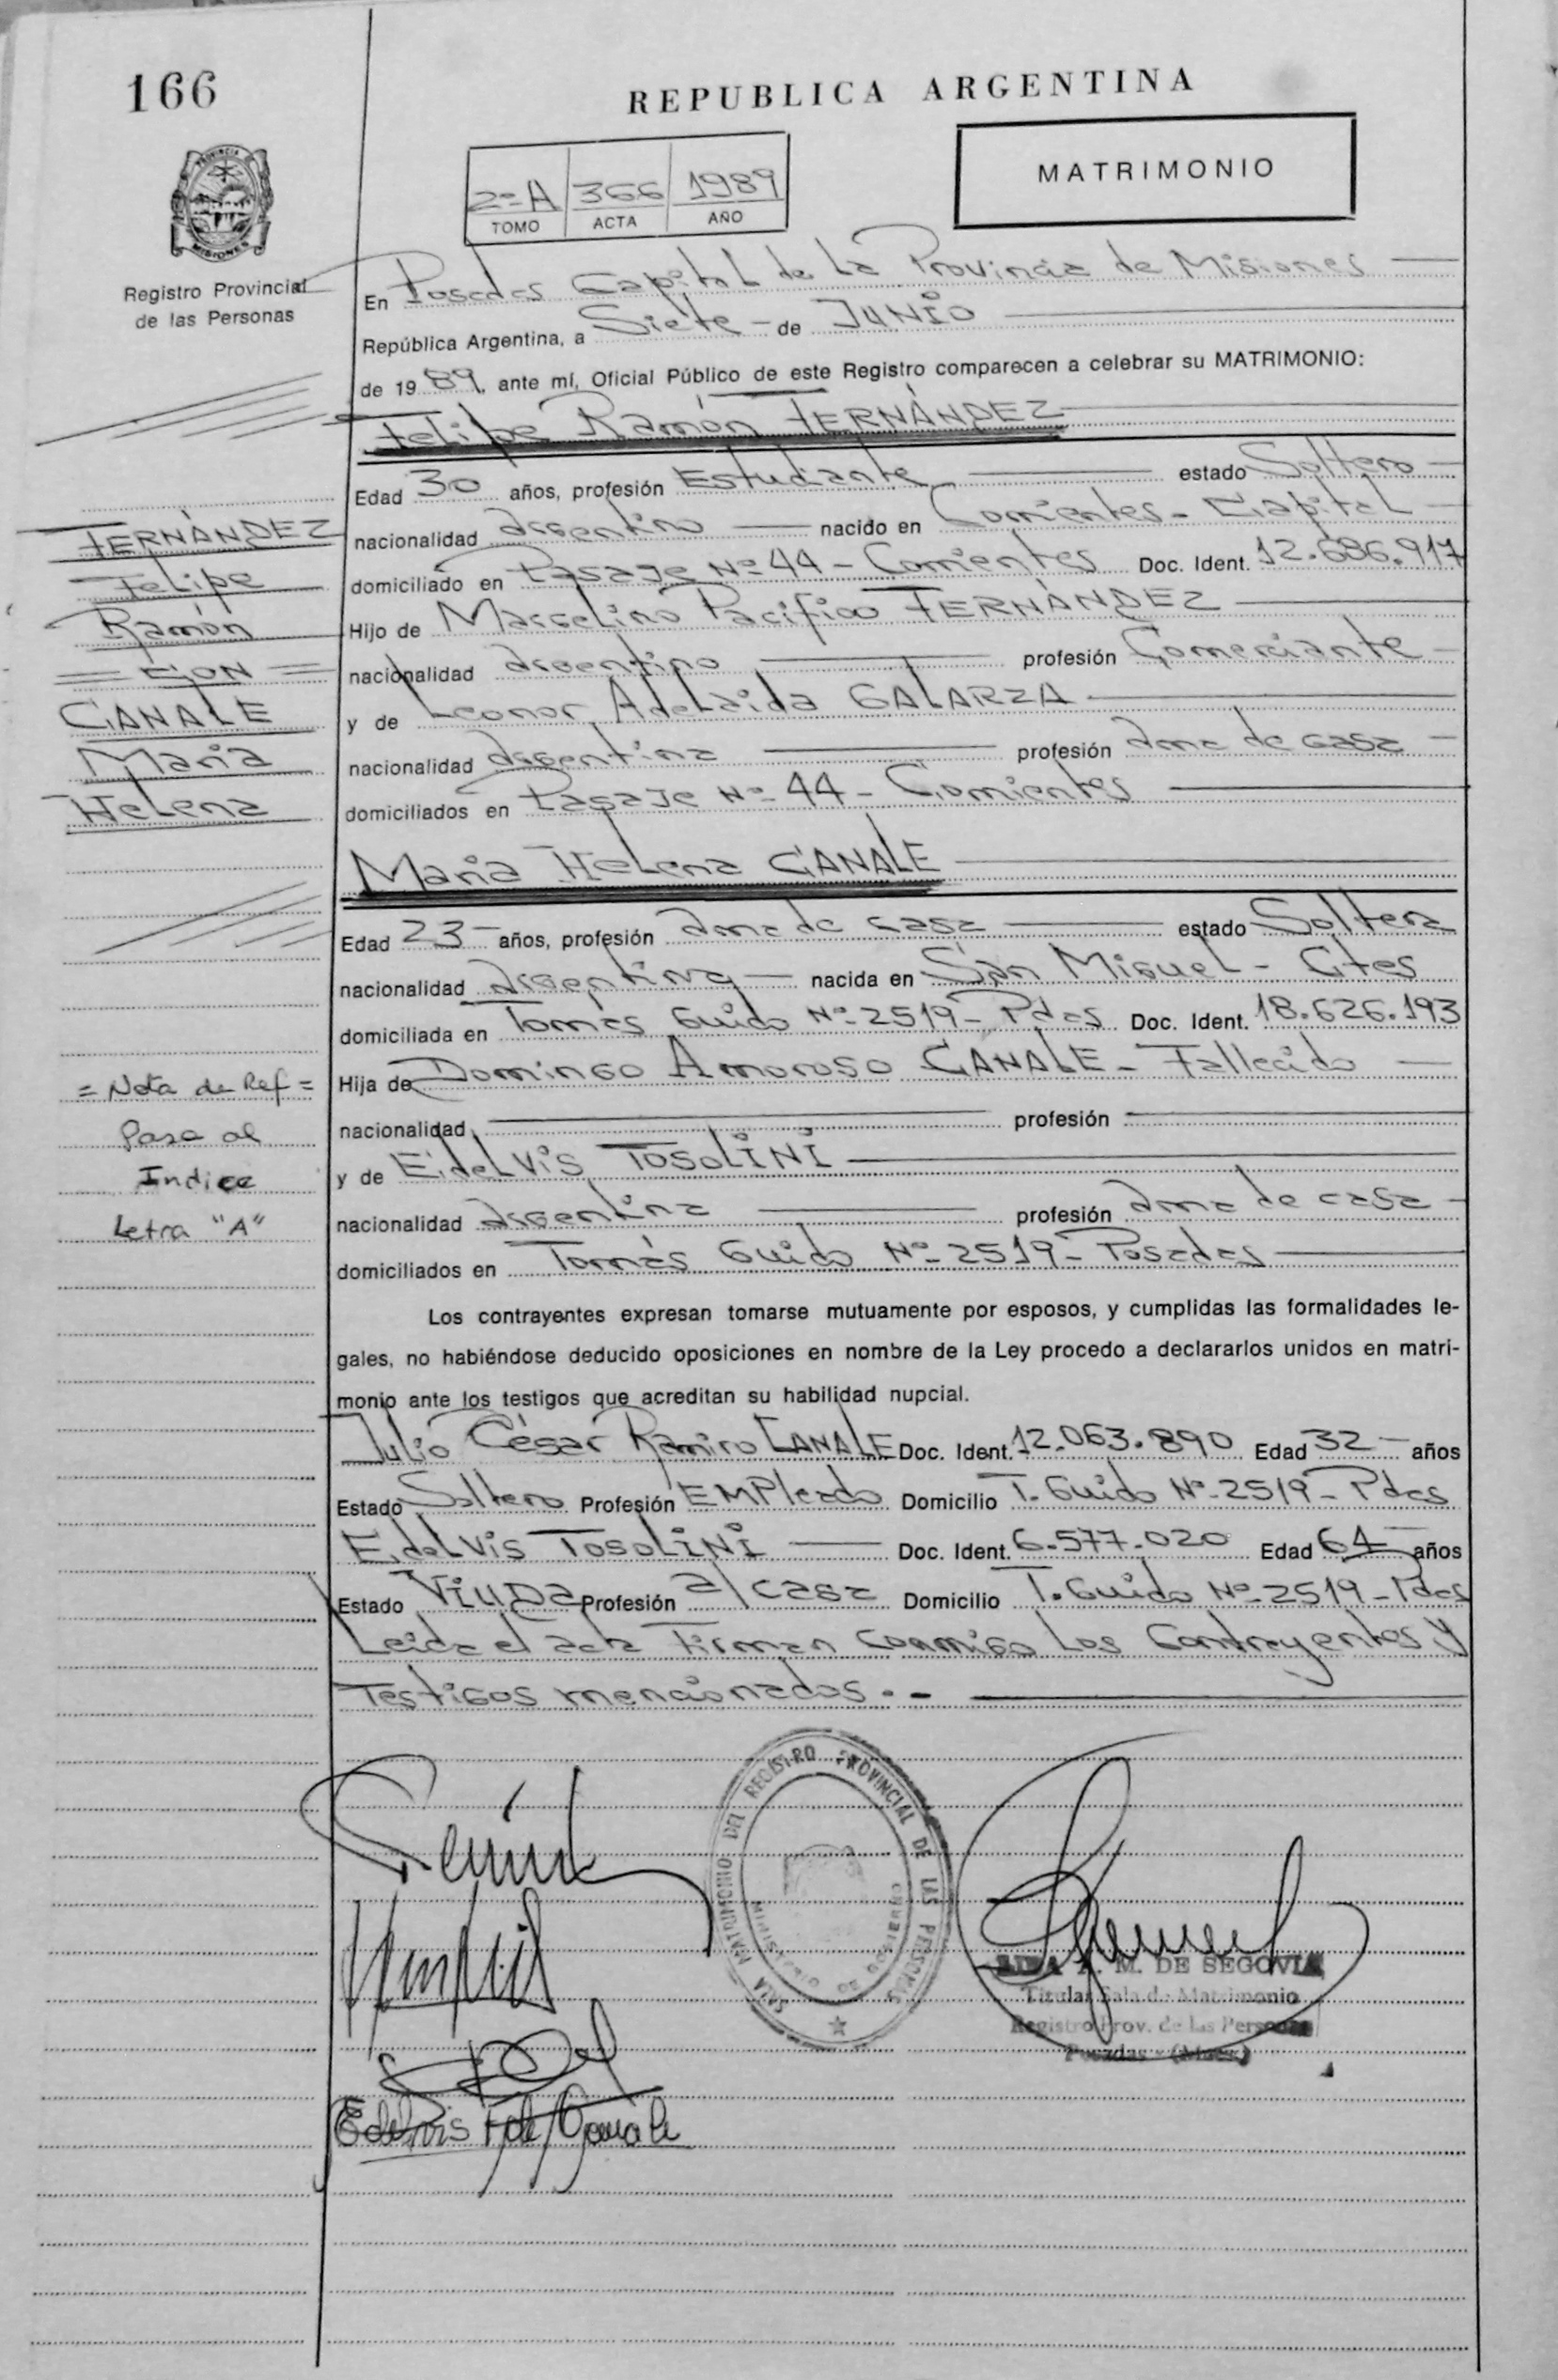 166
REPUBLICA ARGENTINA
MATRIMONIO
2º A 366 1989
TOMO ACTA AÑO
PROVINCIA DE
MISIONES
Registro Provincial
de las Personas
En Posadas Capital de La Provincia de Misiones
República Argentina, a Siete - de JUNIO
de 19 89, ante mí, Oficial Público de este Registro comparecen a celebrar su MATRIMONIO:
Felipe Ramón FERNÁNDEZ
Edad 30 años, profesión Estudiante estado Soltero
nacionalidad argentino nacido en Corrientes - Capital
domiciliado en Pasaje Nº 44 - Corrientes Doc. Ident. 12.686.917
Hijo de Marcelino Pacífico FERNÁNDEZ
nacionalidad argentino profesión Comerciante
y de Leonor Adelaida GALARZA
nacionalidad argentina profesión ama de casa
domiciliados en Pasaje Nº 44 - Corrientes
María Helena CANALE
Edad 23 años, profesión ama de casa estado Soltera
nacionalidad argentina nacida en San Miguel - Ctes
domiciliada en Tomás Guido Nº 2519 - Pdas Doc. Ident. 18.626.193
Hija de Domingo Amoroso CANALE - Fallecido
nacionalidad profesión
y de Eidelvis TOSOLINI
nacionalidad argentina profesión ama de casa
domiciliados en Tomás Guido Nº 2519 - Posadas
FERNÁNDEZ
Felipe
Ramón
= CON =
CANALE
María
Helena
= Nota de Ref =
Pasa al
Indice
Letra "A"
Los contrayentes expresan tomarse mutuamente por esposos, y cumplidas las formalidades le-
gales, no habiéndose deducido oposiciones en nombre de la Ley procedo a declararlos unidos en matri-
monio ante los testigos que acreditan su habilidad nupcial.
Julio César Ramiro CANALE Doc. Ident. 12.063.890 Edad 32 años
Estado Soltero Profesión EMPleado Domicilio T. Guido Nº 2519 - Pdas
Eidelvis TOSOLINI Doc. Ident. 6.577.020 Edad 64 años
Estado Viuda Profesión a/casa Domicilio T. Guido Nº 2519 - Pdas
Leida el acta Firman conmigo Los Contrayentes y
Testigos mencionados.-
SALA MATRIMONIO DEL REGISTRO PROVINCIAL DE LAS PERSONAS
MINISTERIO DE GOBIERNO
A. M. DE SEGOVIA
Titular Sala de Matrimonio
Registro Prov. de las Personas
Posadas - (Mnes)